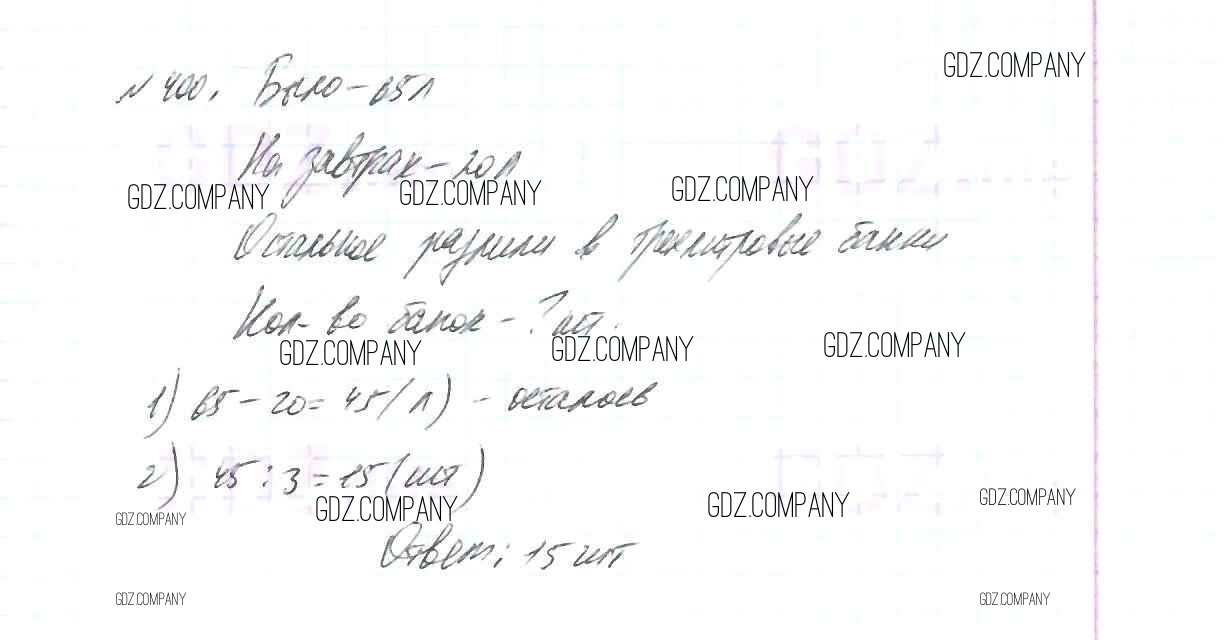 GDZ.COMPANY
№ 400. Было - 65 л
На завтрак - 20 л
GDZ.COMPANY GDZ.COMPANY GDZ.COMPANY
Остальное разлили в трехлитровые банки
Кол-во банок - ? шт.
GDZ.COMPANY GDZ.COMPANY GDZ.COMPANY
1) 65 - 20 = 45 (л) - осталось
2) 45 : 3 = 15 (шт)
GDZ.COMPANY GDZ.COMPANY GDZ.COMPANY GDZ.COMPANY
Ответ: 15 шт
GDZ.COMPANY GDZ.COMPANY